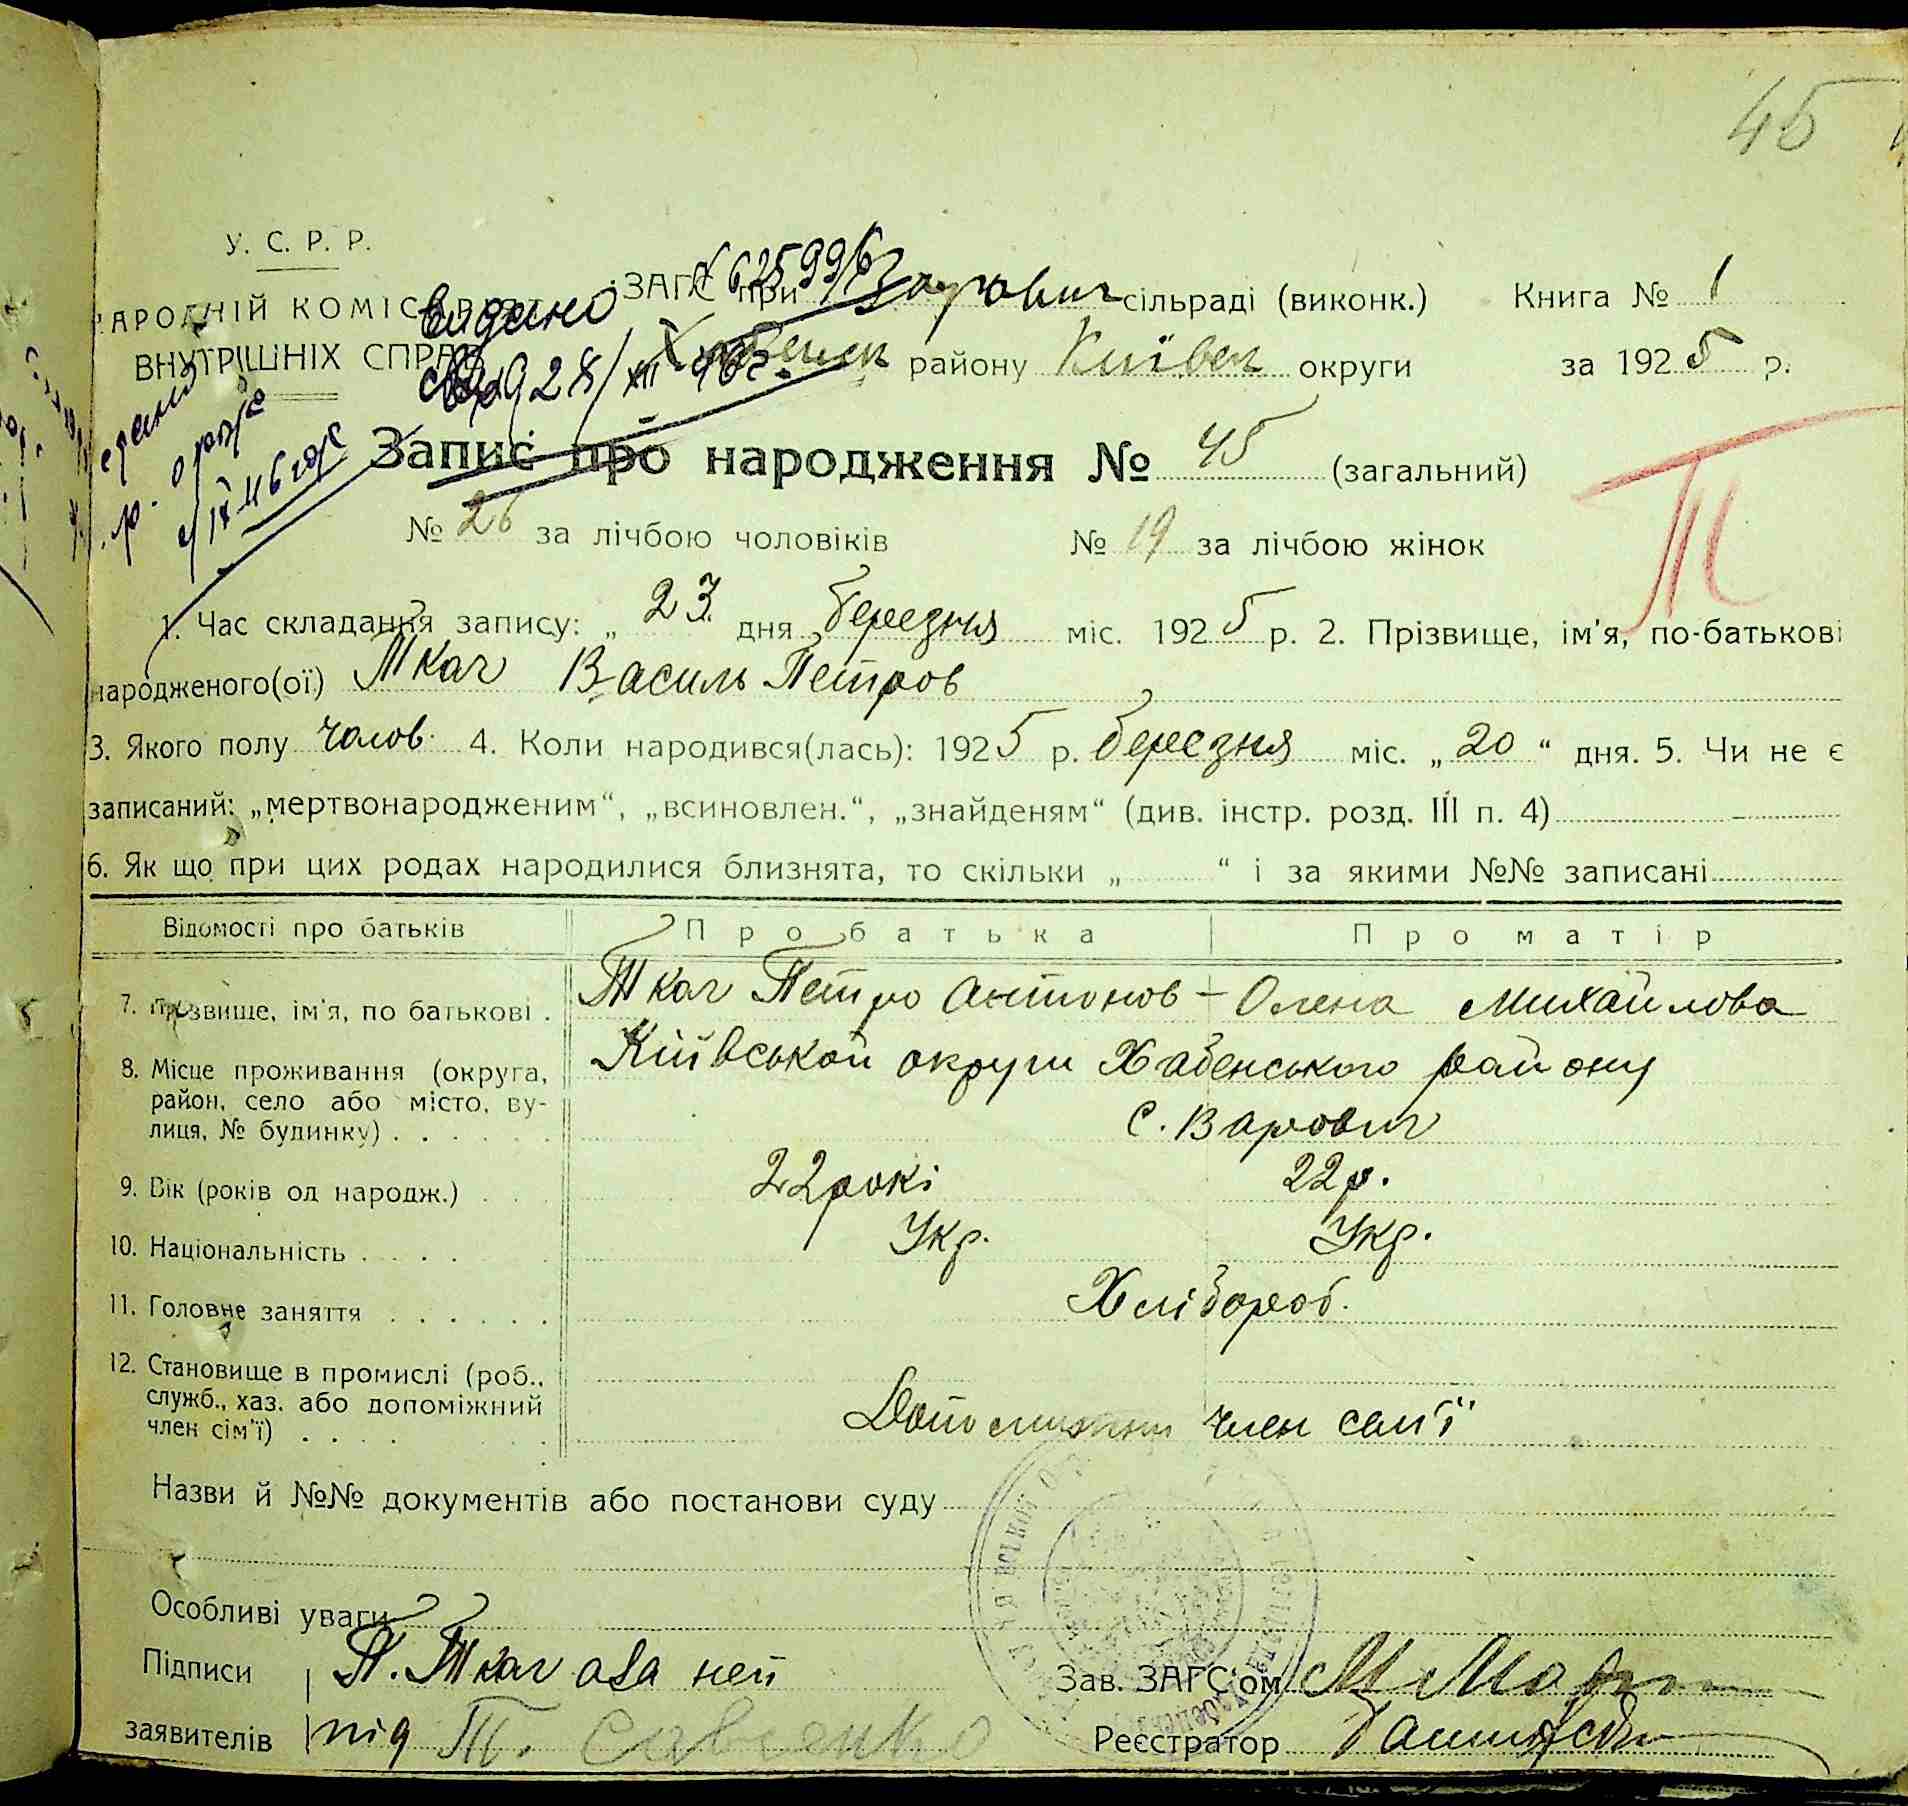 45
У. С. Р. Р.
НАРОДНІЙ КОМІСАРІЯТ
ВНУТРІШНІХ СПРАВ
видано
№ 625996
28/XII 46 г.
ЗАГС при Варович сільраді (виконк.) Книга № 1
Хабенск району Київск округи за 1925 р.
Запис про народження № 45 (загальний)
№ 26 за лічбою чоловіків № 19 за лічбою жінок
1. Час складання запису: „ 23 дня березня міс. 1925 р. 2. Прізвище, ім'я, по-батькові
народженого(ої) Ткач Василь Петров
3. Якого полу чолов. 4. Коли народився(лась): 1925 р. березня міс. „ 20 “ дня. 5. Чи не є
записаний: „мертвонародженим“, „всиновлен.“, „знайденям“ (див. інстр. розд. III п. 4)
6. Як що при цих родах народилися близнята, то скільки „ “ і за якими №№ записані
Відомості про батьків Про батька Про матір
7. Прізвище, ім'я, по батькові . Ткач Петро Антонов – Олена Михайлова
8. Місце проживання (округа, район, село або місто, вулиця, № будинку) Київськой округи Хабенського району
с. Варович
9. Вік (років од народж.) 22 рокі 22 р.
10. Національність Укр. Укр.
11. Головне заняття Хлібороб.
12. Становище в промислі (роб.,
служб., хаз. або допоміжний
член сім'ї) Допоміжни член семї
Назви й №№ документів або постанови суду
Особливі уваги
Підписи П. Ткач а за неп
заявителів під Т. Савченко
Зав. ЗАГС'ом
Реєстратор
Т